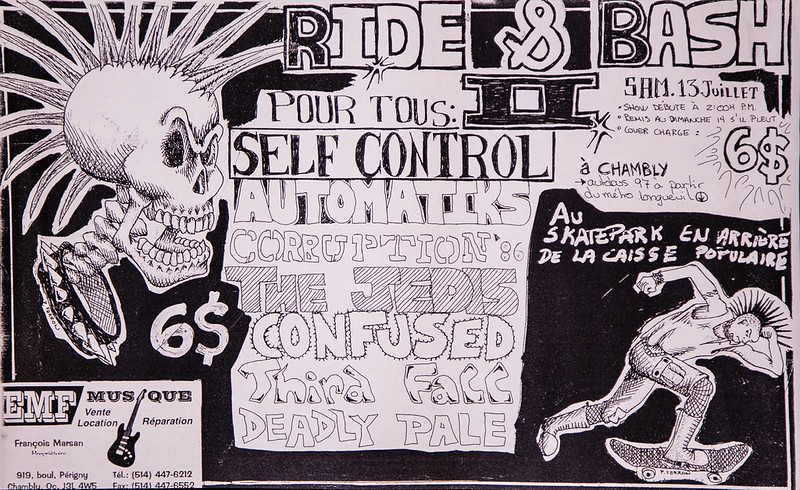 RIDE & BASH
II
POUR TOUS:
SAM. 13 Juillet
• SHOW DÉBUTE À 2:00H P.M.
• REMIS AU DIMANCHE 14 S'IL PLEUT
• COVER CHARGE :
6$
à CHAMBLY
→ autobus 97 à partir
du métro Longueuil
SELF CONTROL
AUTOMATIKS
CORRUPTION '86
THE JEDIS
CONFUSED
Third Fall
DEADLY PALE
AU
SKATEPARK EN ARRIÈRE
DE LA CAISSE POPULAIRE
6$
EMF MUSIQUE
Vente
Location
Réparation
François Marsan
Propriétaire
919, boul. Périgny
Chambly, Qc, J3L 4W5
Tél.: (514) 447-6212
Fax: (514) 447-6552
P. TERROR